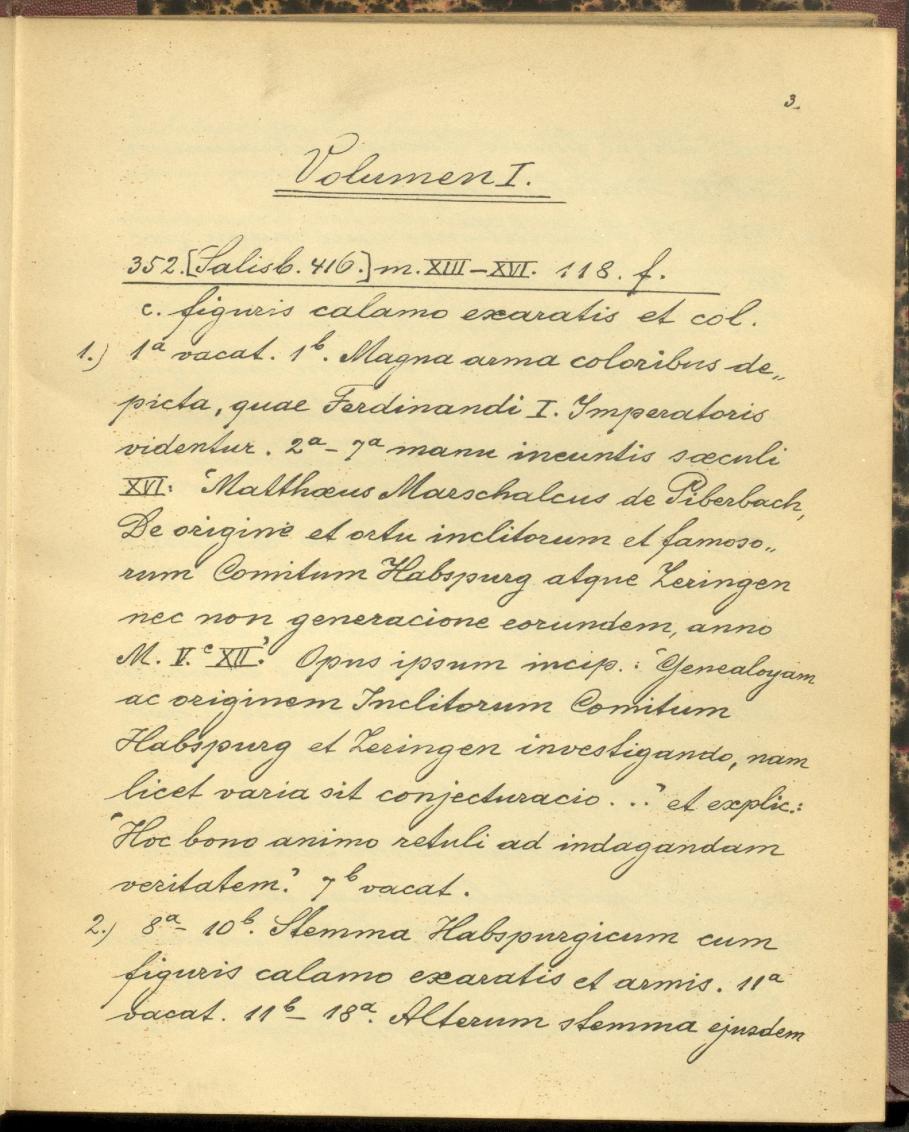 3.
Volumen I.
352. [Salisb. 416.] m. XIII–XVI. 118. f.
c. figuris calamo exaratis et col.
1.) 1ᵃ vacat. 1ᵇ. Magna arma coloribus de„
picta, quae Ferdinandi I. Imperatoris
videntur. 2ᵃ– 7ᵃ manu ineuntis sæculi
XVI: "Matthæus Marschalcus de Piberbach,
De origine et ortu inclitorum et famoso„
rum Comitum Habspurg atque Zeringen
nec non generacione eorundem, anno
M. V.ᶜ XII." Opus ipsum incip.: "Genealoyam
ac originem Inclitorum Comitum
Habspurg et Zeringen investigando, nam
licet varia sit conjecturacio..." et explic.:
"Hoc bono animo retuli ad indagandam
veritatem." 7ᵇ vacat.
2.) 8ᵃ– 10ᵇ. Stemma Habspurgicum cum
figuris calamo exaratis et armis. 11ᵃ
vacat. 11ᵇ– 18ᵃ. Alterum stemma ejusdem